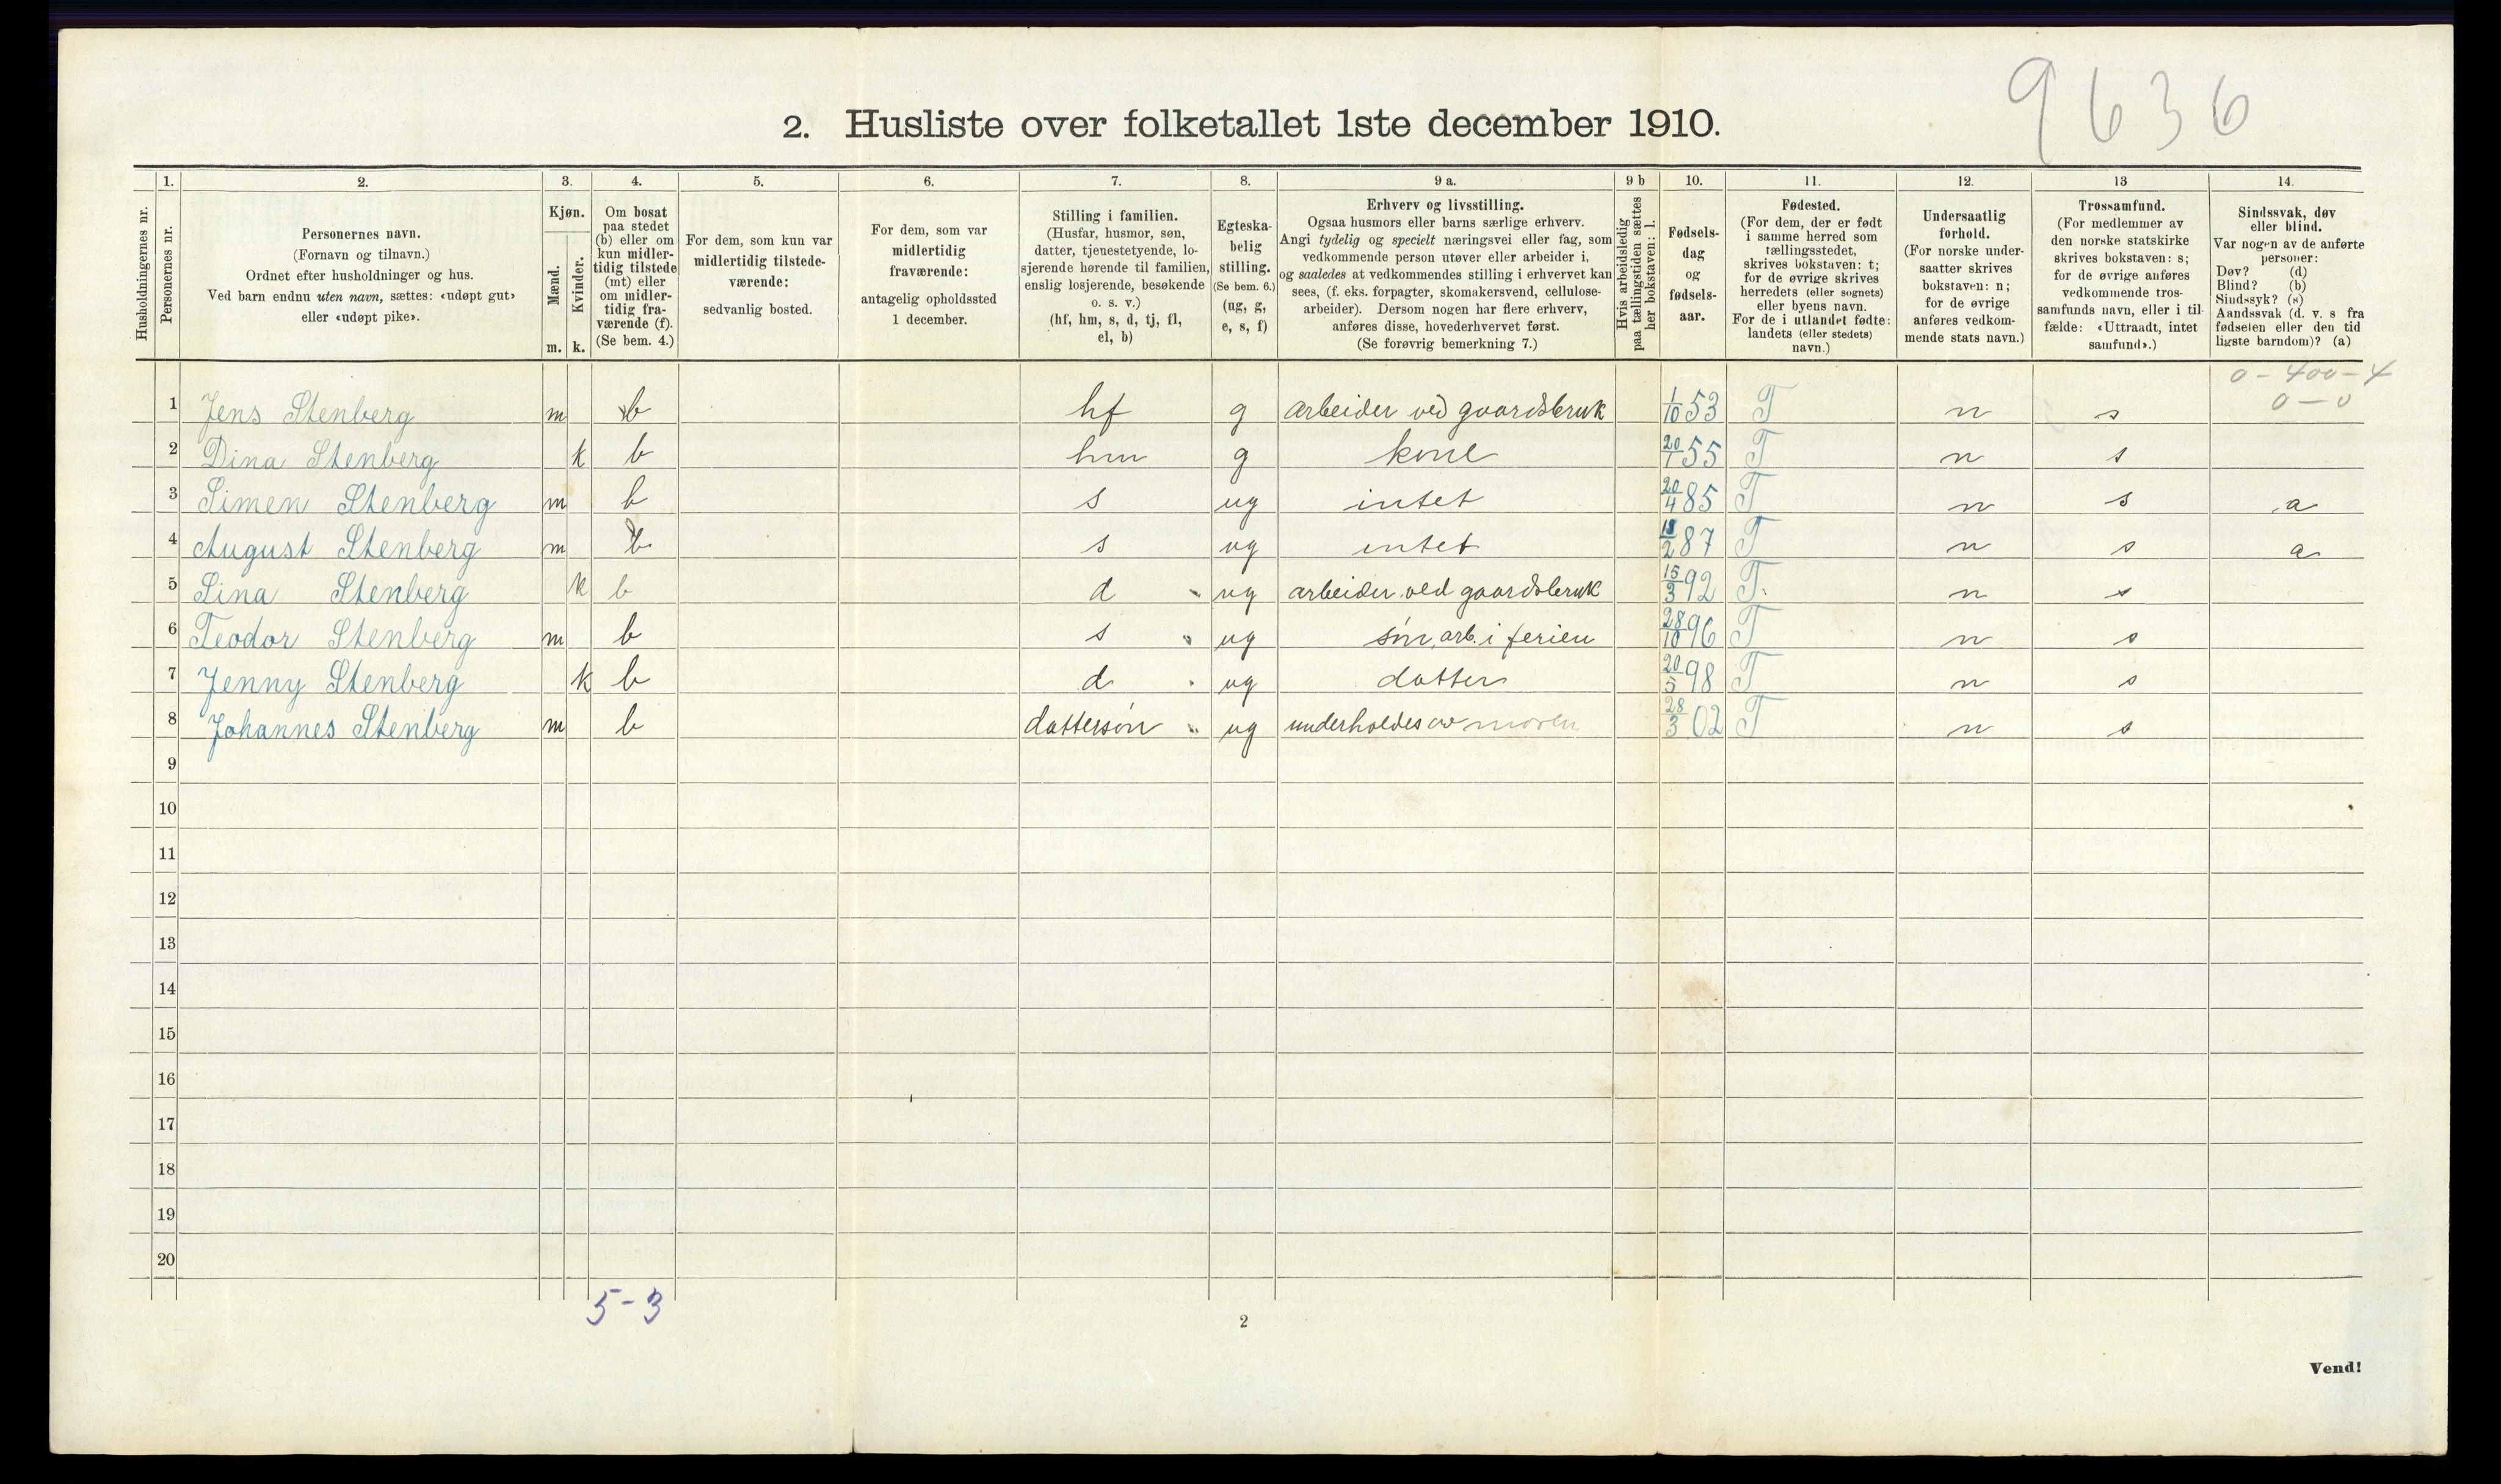 9636
2. Husliste over folketallet 1ste december 1910.
1. 2. 3. 4. 5. 6. 7. 8. 9 a. 9 b 10. 11. 12. 13 14.
Husholdningernes nr.
Personernes nr.
Personernes navn.
(Fornavn og tilnavn.)
Ordnet efter husholdninger og hus.
Ved barn endnu uten navn, sættes: «udøpt gut»
eller «udøpt pike».
Kjøn.
Mænd.
Kvinder.
m. k.
Om bosat
paa stedet
(b) eller om
kun midler-
tidig tilstede
(mt) eller
om midler-
tidig fra-
værende (f).
(Se bem. 4.)
For dem, som kun var
midlertidig tilstede-
værende:
sedvanlig bosted.
For dem, som var
midlertidig
fraværende:
antagelig opholdssted
1 december.
Stilling i familien.
(Husfar, husmor, søn,
datter, tjenestetyende, lo-
sjerende hørende til familien,
enslig losjerende, besøkende
o. s. v.)
(hf, hm, s, d, tj, fl,
el, b)
Egteska-
belig
stilling.
(Se bem. 6.)
(ug, g,
e, s, f)
Erhverv og livsstilling.
Ogsaa husmors eller barns særlige erhverv.
Angi tydelig og specielt næringsvei eller fag, som
vedkommende person utøver eller arbeider i,
og saaledes at vedkommendes stilling i erhvervet kan
sees, (f. eks. forpagter, skomakersvend, cellulose-
arbeider). Dersom nogen har flere erhverv,
anføres disse, hovederhvervet først.
(Se forøvrig bemerkning 7.)
Hvis arbeidsledig
paa tællingstiden sættes
her bokstaven: l.
Fødsels-
dag
og
fødsels-
aar.
Fødested.
(For dem, der er født
i samme herred som
tællingsstedet,
skrives bokstaven: t;
for de øvrige skrives
herredets (eller sognets)
eller byens navn.
For de i utlandet fødte:
landets (eller stedets)
navn.)
Undersaatlig
forhold.
(For norske under-
saatter skrives
bokstaven: n;
for de øvrige
anføres vedkom-
mende stats navn.)
Trossamfund.
(For medlemmer av
den norske statskirke
skrives bokstaven: s;
for de øvrige anføres
vedkommende tros-
samfunds navn, eller i til-
fælde: «Uttraadt, intet
samfund».)
Sindssvak, døv
eller blind.
Var nogen av de anførte
personer:
Døv? (d)
Blind? (b)
Sindssyk? (s)
Aandssvak (d. v. s fra
fødselen eller den tid
ligste barndom)? (a)
0 - 400 - 4
0 - 0
1 Jens Stenberg m b hf g arbeider ved gaardsbruk 1/10 53 T n s
2 Dina Stenberg k b hm g kone 20/1 55 T n s
3 Simen Stenberg m b s ug intet 20/4 85 T n s a
4 August Stenberg m b s ug intet 18/2 87 T n s a
5 Sina Stenberg k b d ug arbeider ved gaardsbruk 15/3 92 T. n s
6 Teodor Stenberg m b s ug søn, arb. i ferien 28/10 96 T n s
7 Jenny Stenberg k b d ug datter 20/5 98 T n s
8 Johannes Stenberg m b dattersøn ug underholdes av moren 28/3 02 T n s
9
10
11
12
13
14
15
16
17
18
19
20
5 - 3
2
Vend!